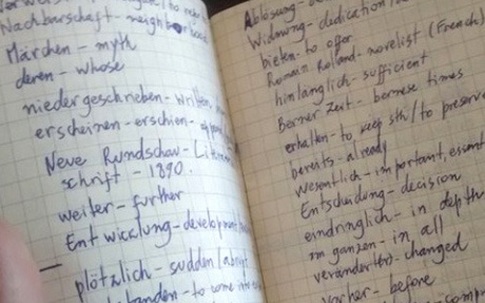 Nachbarschaft - neighborhood
Märchen - myth
deren - whose
niedergeschrieben - written
erscheinen - erschien -
Neue Rundschau -
schrift - 1890.
weiter - further
Entwicklung - development
plötzlich - sudden/abrupt
- to come into
Ablösung -
Widmung - dedication
bieten - to offer
Romain Roland - novelist (French)
hinlänglich - sufficient
Berner Zeit - bernese times
erhalten - to keep sth/to preserve
bereits - already
wesentlich - important,
Entscheidung - decision
eindringlich - in depth
im ganzen - in all
verändert(en) - changed
vorher - before